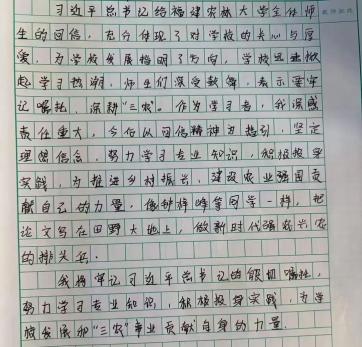 习近平总书记给福建农林大学全体师
生的回信，充分体现了对学校的关心与厚
爱，为学校发展指明了方向，学校迅速掀
起学习热潮，师生们深受鼓舞，表示要牢
记嘱托，深耕“三农”。作为学习者，我深感
责任重大，今后以回信精神为指引，坚定
理想信念，努力学习专业知识，积极投身
实践，为推进乡村振兴，建设农业强国贡
献自己的力量，像钟梓峰等同学一样，把
论文写在田野大地上，做新时代强农兴农
的排头兵。
我将牢记习近平总书记的殷切嘱托，
努力学习专业知识，积极投身实践，为学
校发展和“三农”事业贡献自身的力量。